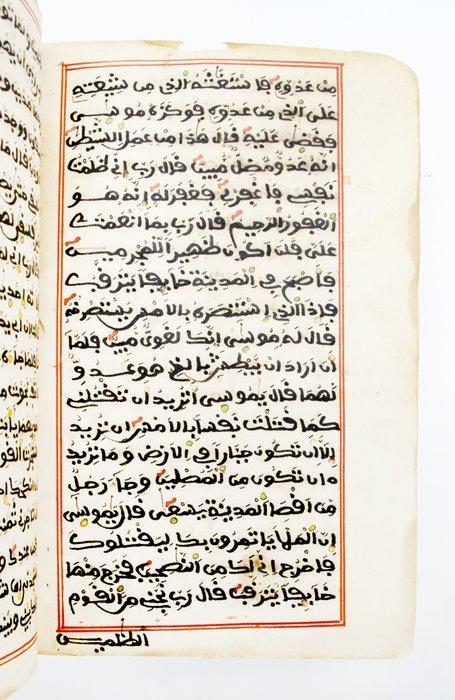 من عدوه فاستغثه الذي من شيعته
على الذي من عدوه فوكزه موسى
فقضى عليه قال هذا من عمل الشيطن
انه عدو مضل مبين قال رب اني ظلمت
نفسي فاغفر لي فغفر له انه هو
الغفور الرحيم قال رب بما انعمت
علي فلن اكون ظهيرا للمجرمين
فاصبح في المدينة خايفا يترقب
فاذا الذي استنصره بالامس يستصرخه
قال له موسى انك لغوي مبين فلما
ان اراد ان يبطش بالذي هو عدو
لهما قال يموسى اتريد ان تقتلني
كما قتلت نفسا بالامس ان تريد
الا ان تكون جبارا في الارض وما تريد
ان تكون من المصلحين وجا رجل
من اقصا المدينة يسعى قال يموسى
ان الملا ياتمرون بك ليقتلوك
فاخرج اني لك من النصحين فخرج منها
خايفا يترقب قال رب نجني من القوم
الظلمين